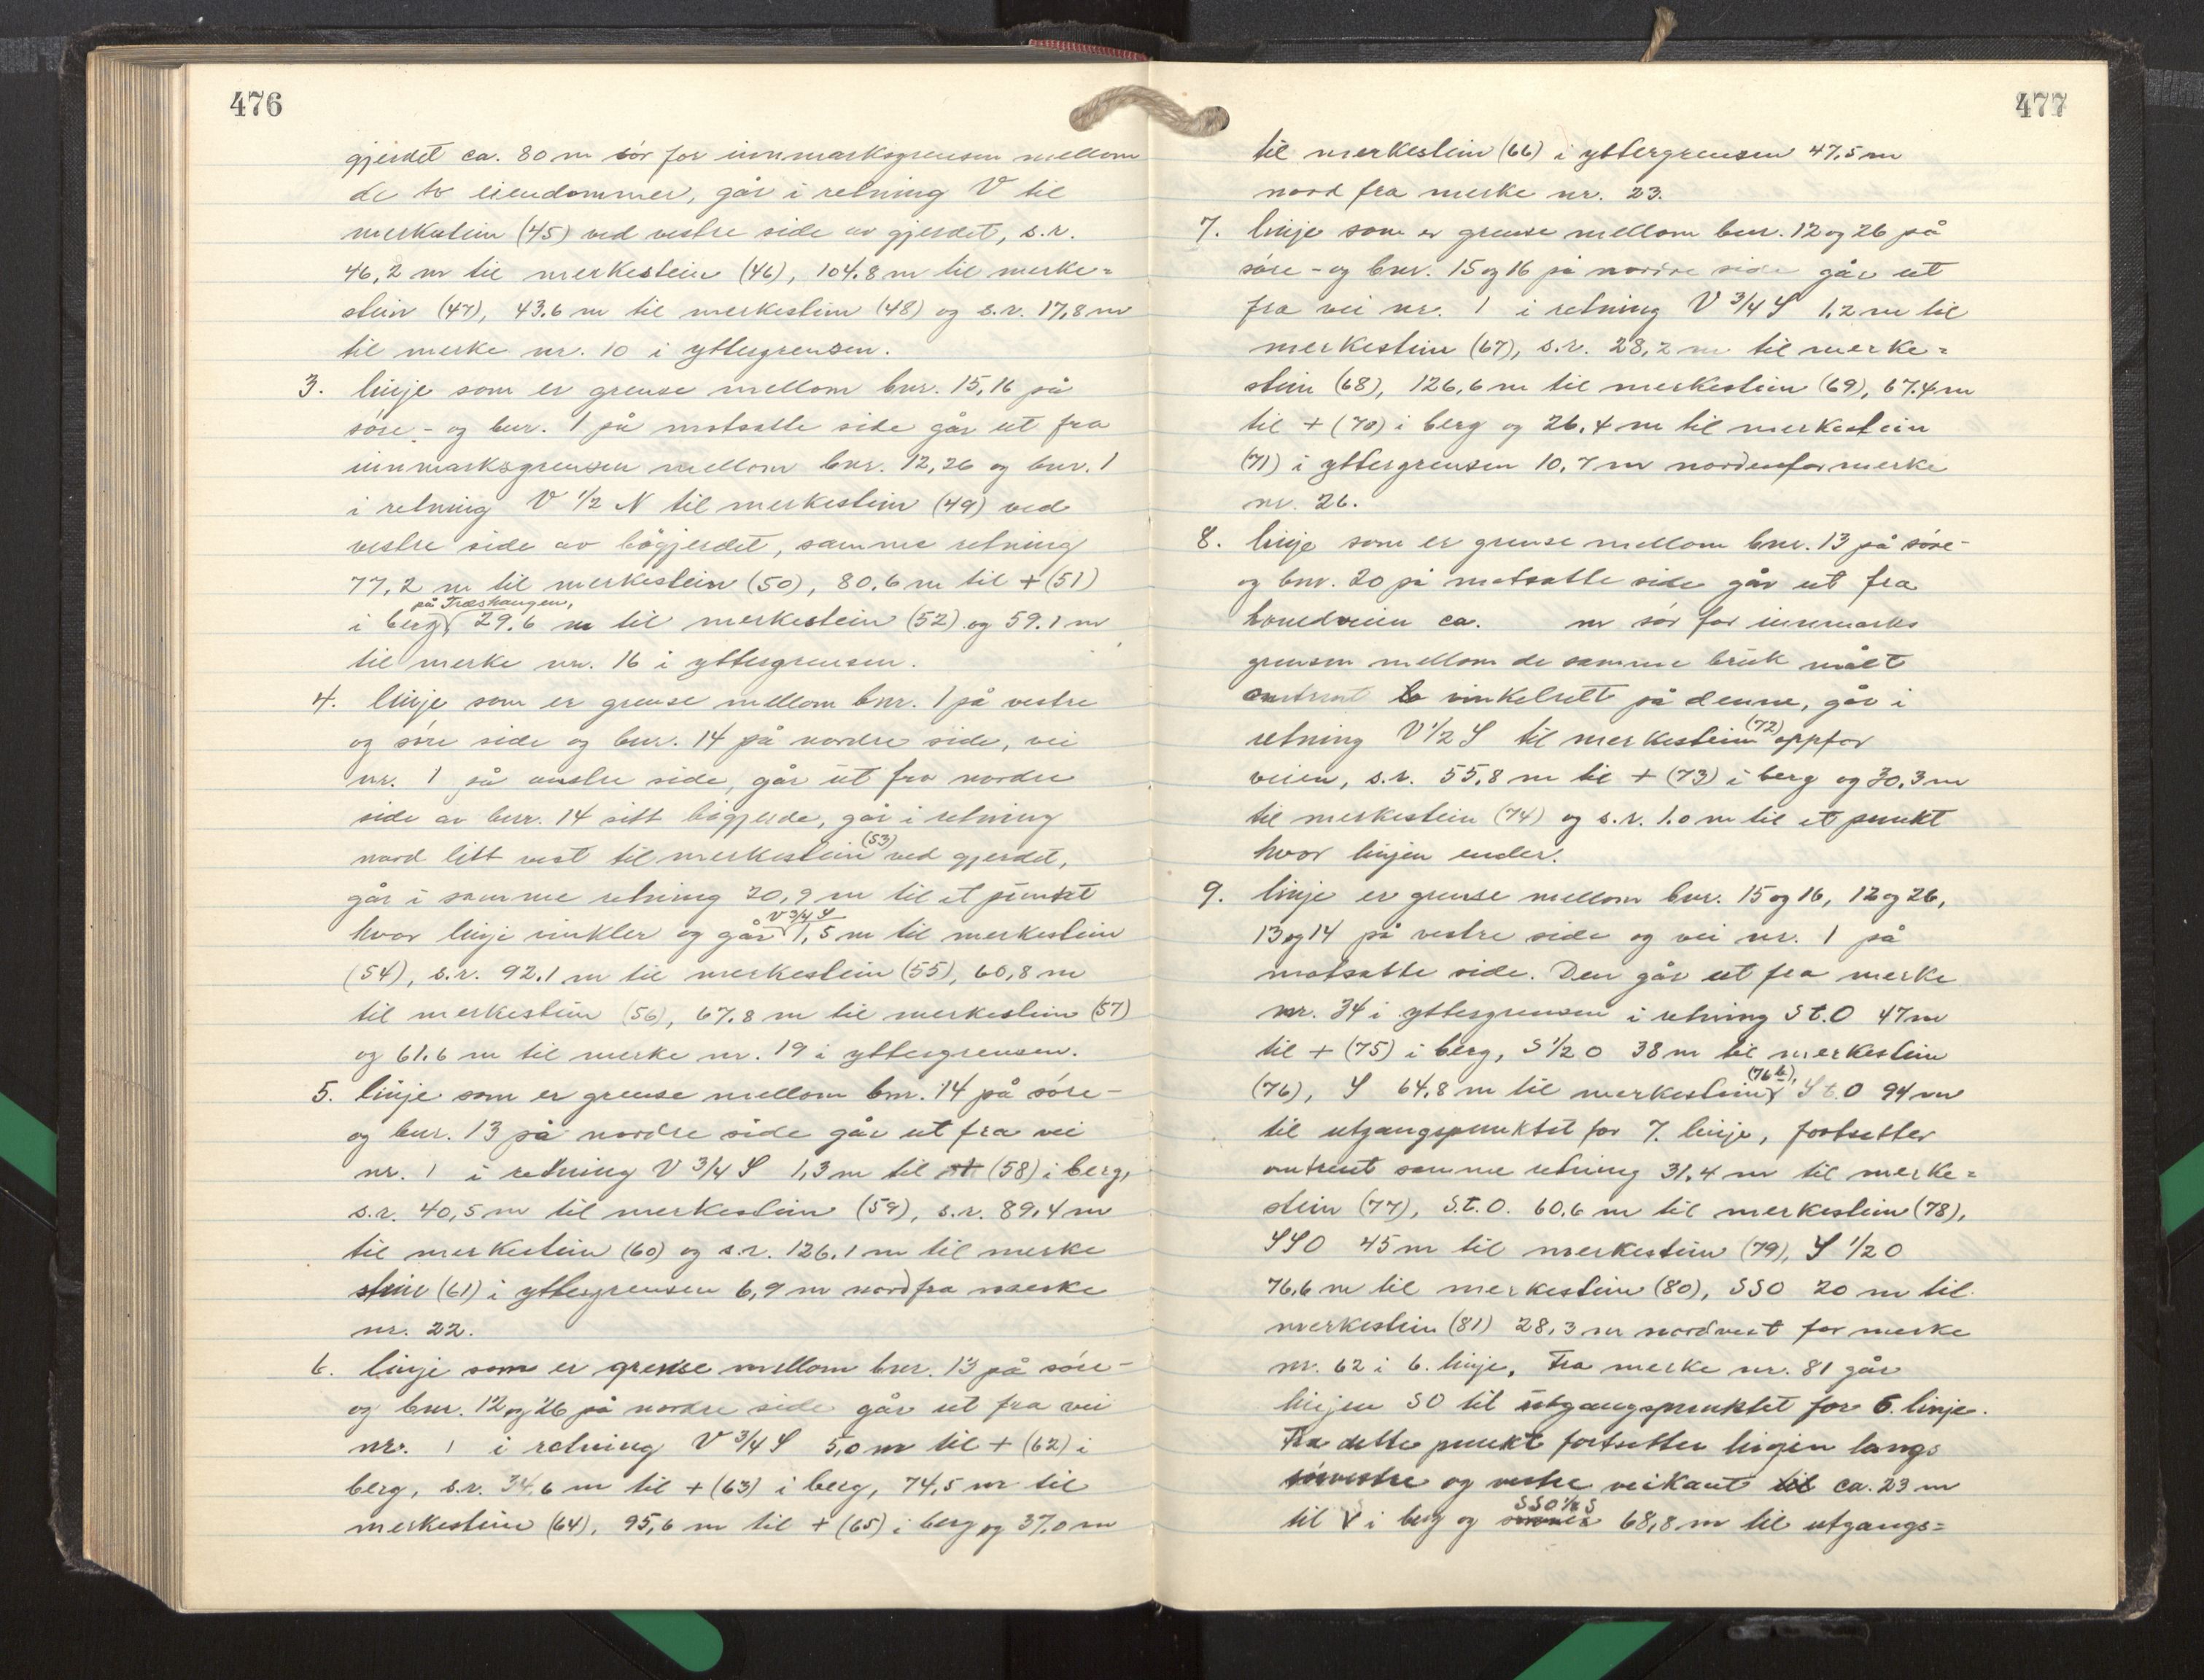 476
gjerdet ca. 80 m sör for innmarksgrensen mellom
de to eiendommer, går i retning V til
merkestein (45) ved vestre side av gjerdet, s.r.
46,2 m til merkestein (46), 104,8 m til merke=
stein (47), 43,6 m til merkestein (48) og s.r. 17,8 m
til merke nr. 10 i yttergrensen.
3. linje som er grense mellom bnr. 15, 16 på
söre - og bnr. 1 på motsatte side går ut fra
innmarksgrensen mellom bnr. 12, 26 og bnr. 1
i retning V 1/2 N til merkestein (49) ved
vestre side av bögjerdet, samme retning
77,2 m til merkestein (50), 80,6 m til + (51)
på Træshaugen,
i berg 29.6 m til merkestein (52) og 59.1 m
til merke nr. 16 i yttergrensen.
4. linje som er grense mellom bnr. 1 på vestre
og söre side og bnr. 14 på nordre side, vei
nr. 1 på austre side, går ut fra nordre
side av bnr. 14 sitt bögjerde, går i retning
nord litt vest til merkestein (53) ved gjerdet,
går i samme retning 20,9 m til et punkt
hvor linje vinkler og går V 3/4 S 1,5 m til merkestein
(54), s.r. 92.1 m til merkestein (55), 60,8 m
til merkestein (56), 67.8 m til merkestein (57)
og 61.6 m til merke nr. 19 i yttergrensen.
5. linje som er grense mellom bnr. 14 på söre -
og bnr. 13 på nordre side går ut fra vei
nr. 1 i retning V 3/4 S 1,3 m til + (58) i berg,
s.r. 40,5 m til merkestein (59), s.r. 89,4 m
til merkestein (60) og s.r. 126.1 m til merke
stein (61) i yttergrensen 6,9 m nord fra merke
nr. 22.
6. linje som er grense mellom bnr. 13 på söre -
og bnr. 12 og 26 på nordre side går ut fra vei
nr. 1 i retning V 3/4 S 5,0 m til + (62) i
berg, s.r. 34,6 m til + (63) i berg, 74,5 m til
merkestein (64), 95,6 m til + (65) i berg og 37,0 m
477
til merkestein (66) i yttergrensen 47,5 m
nord fra merke nr. 23.
7. linje som er grense mellom bnr. 12 og 26 på
söre - og bnr. 15 og 16 på nordre side går ut
fra vei nr. 1 i retning V 3/4 S 1,2 m til
merkestein (67), s.r. 28,2 m til merke=
stein (68), 126,6 m til merkestein (69), 67.4 m
til + (70) i berg og 26,4 m til merkestein
(71) i yttergrensen 10,7 m nordenfor merke
nr. 26.
8. linje som er grense mellom bnr. 13 på söre -
og bnr. 20 på motsatte side går ut fra
hovedveien ca. m sör for innmarks
grensen mellom de samme bruk målt
omtrent vinkelrett på denne, går i
retning V 1/2 S til merkestein (72) oppfor
veien, s.r. 55,8 m til + (73) i berg og 30,3 m
til merkestein (74) og s.r. 1.0 m til et punkt
hvor linjen ender.
9. linje er grense mellom bnr. 15 og 16, 12 og 26,
13 og 14 på vestre side og vei nr. 1 på
motsatte side. Den går ut fra merke
nr. 34 i yttergrensen i retning S t. O 47 m
til + (75) i berg, S 1/2 O 38 m til merkestein
(76), S 64,8 m til merkestein (76 b), S t. O 94 m
til utgangspunktet for 7. linje, fortsetter
omtrent samme retning 31.4 m til merke=
stein (77), S.t.O. 60.6 m til merkestein (78),
SSO 45 m til merkestein (79), S 1/2 O
76,6 m til merkestein (80), SSO 20 m til
merkestein (81) 28,3 m nordvest for merke
nr. 62 i 6. linje. Fra merke nr. 81 går
linjen SO til utgangspunktet for 6. linje.
Fra dette punkt fortsetter linjen langs
sörvestre og vestre veikant til ca. 23 m
til V i berg og SSO 1/2 S 68,8 m til utgangs=